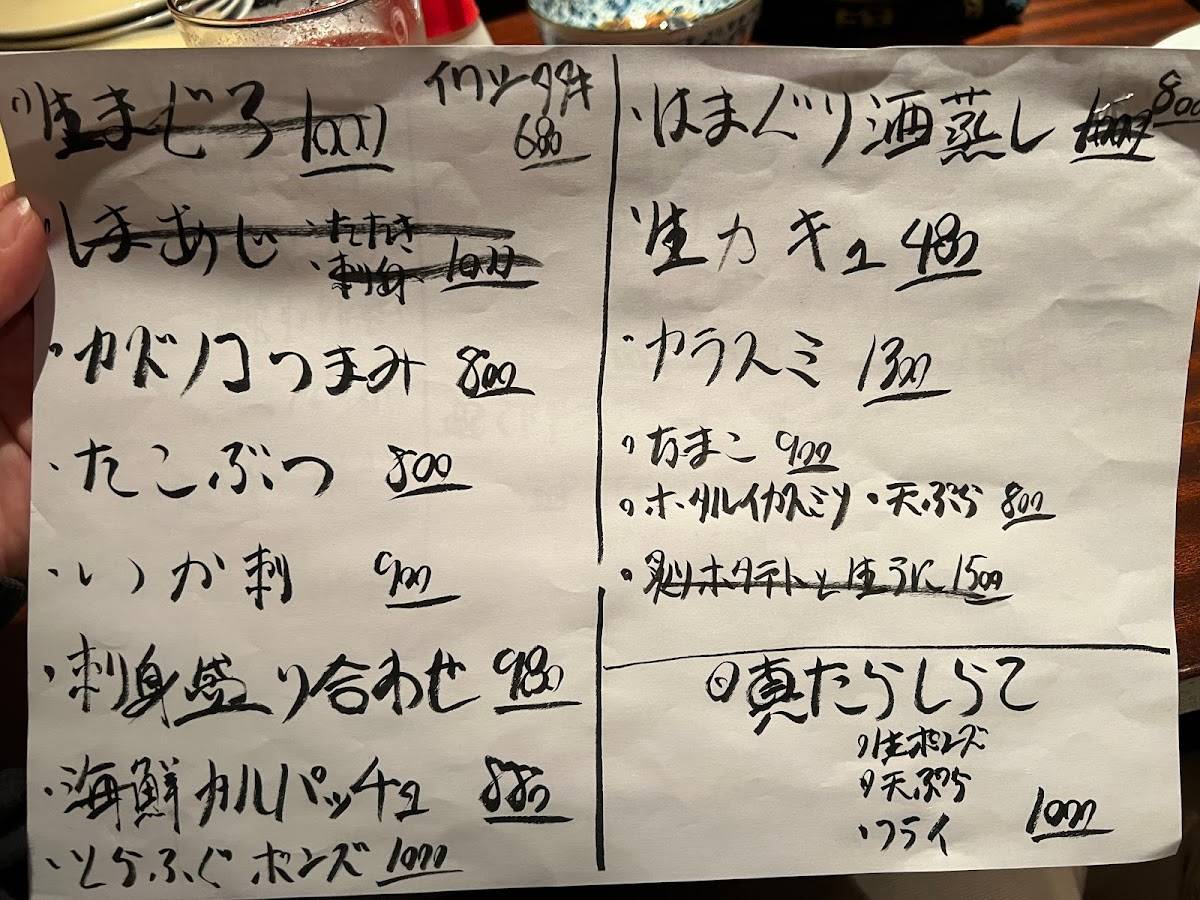 ・生まぐろ 1000
イワシタタキ
680
・しまあじ ・たたき
・刺身 1000
・カズノコつまみ 800
・たこぶつ 800
・いか刺 900
・刺身盛り合わせ 980
・海鮮カルパッチョ 880
・とらふぐポンズ 1000
・はまぐり酒蒸し 1000 800
・生カキ 480
・カラスミ 1300
・なまこ 900
・ホタルイカスミソ・天ぷら 800
・炙りホタテトと生うに 1500
・真たらしらこ
・生ポンズ
・天ぷら
・フライ 1000